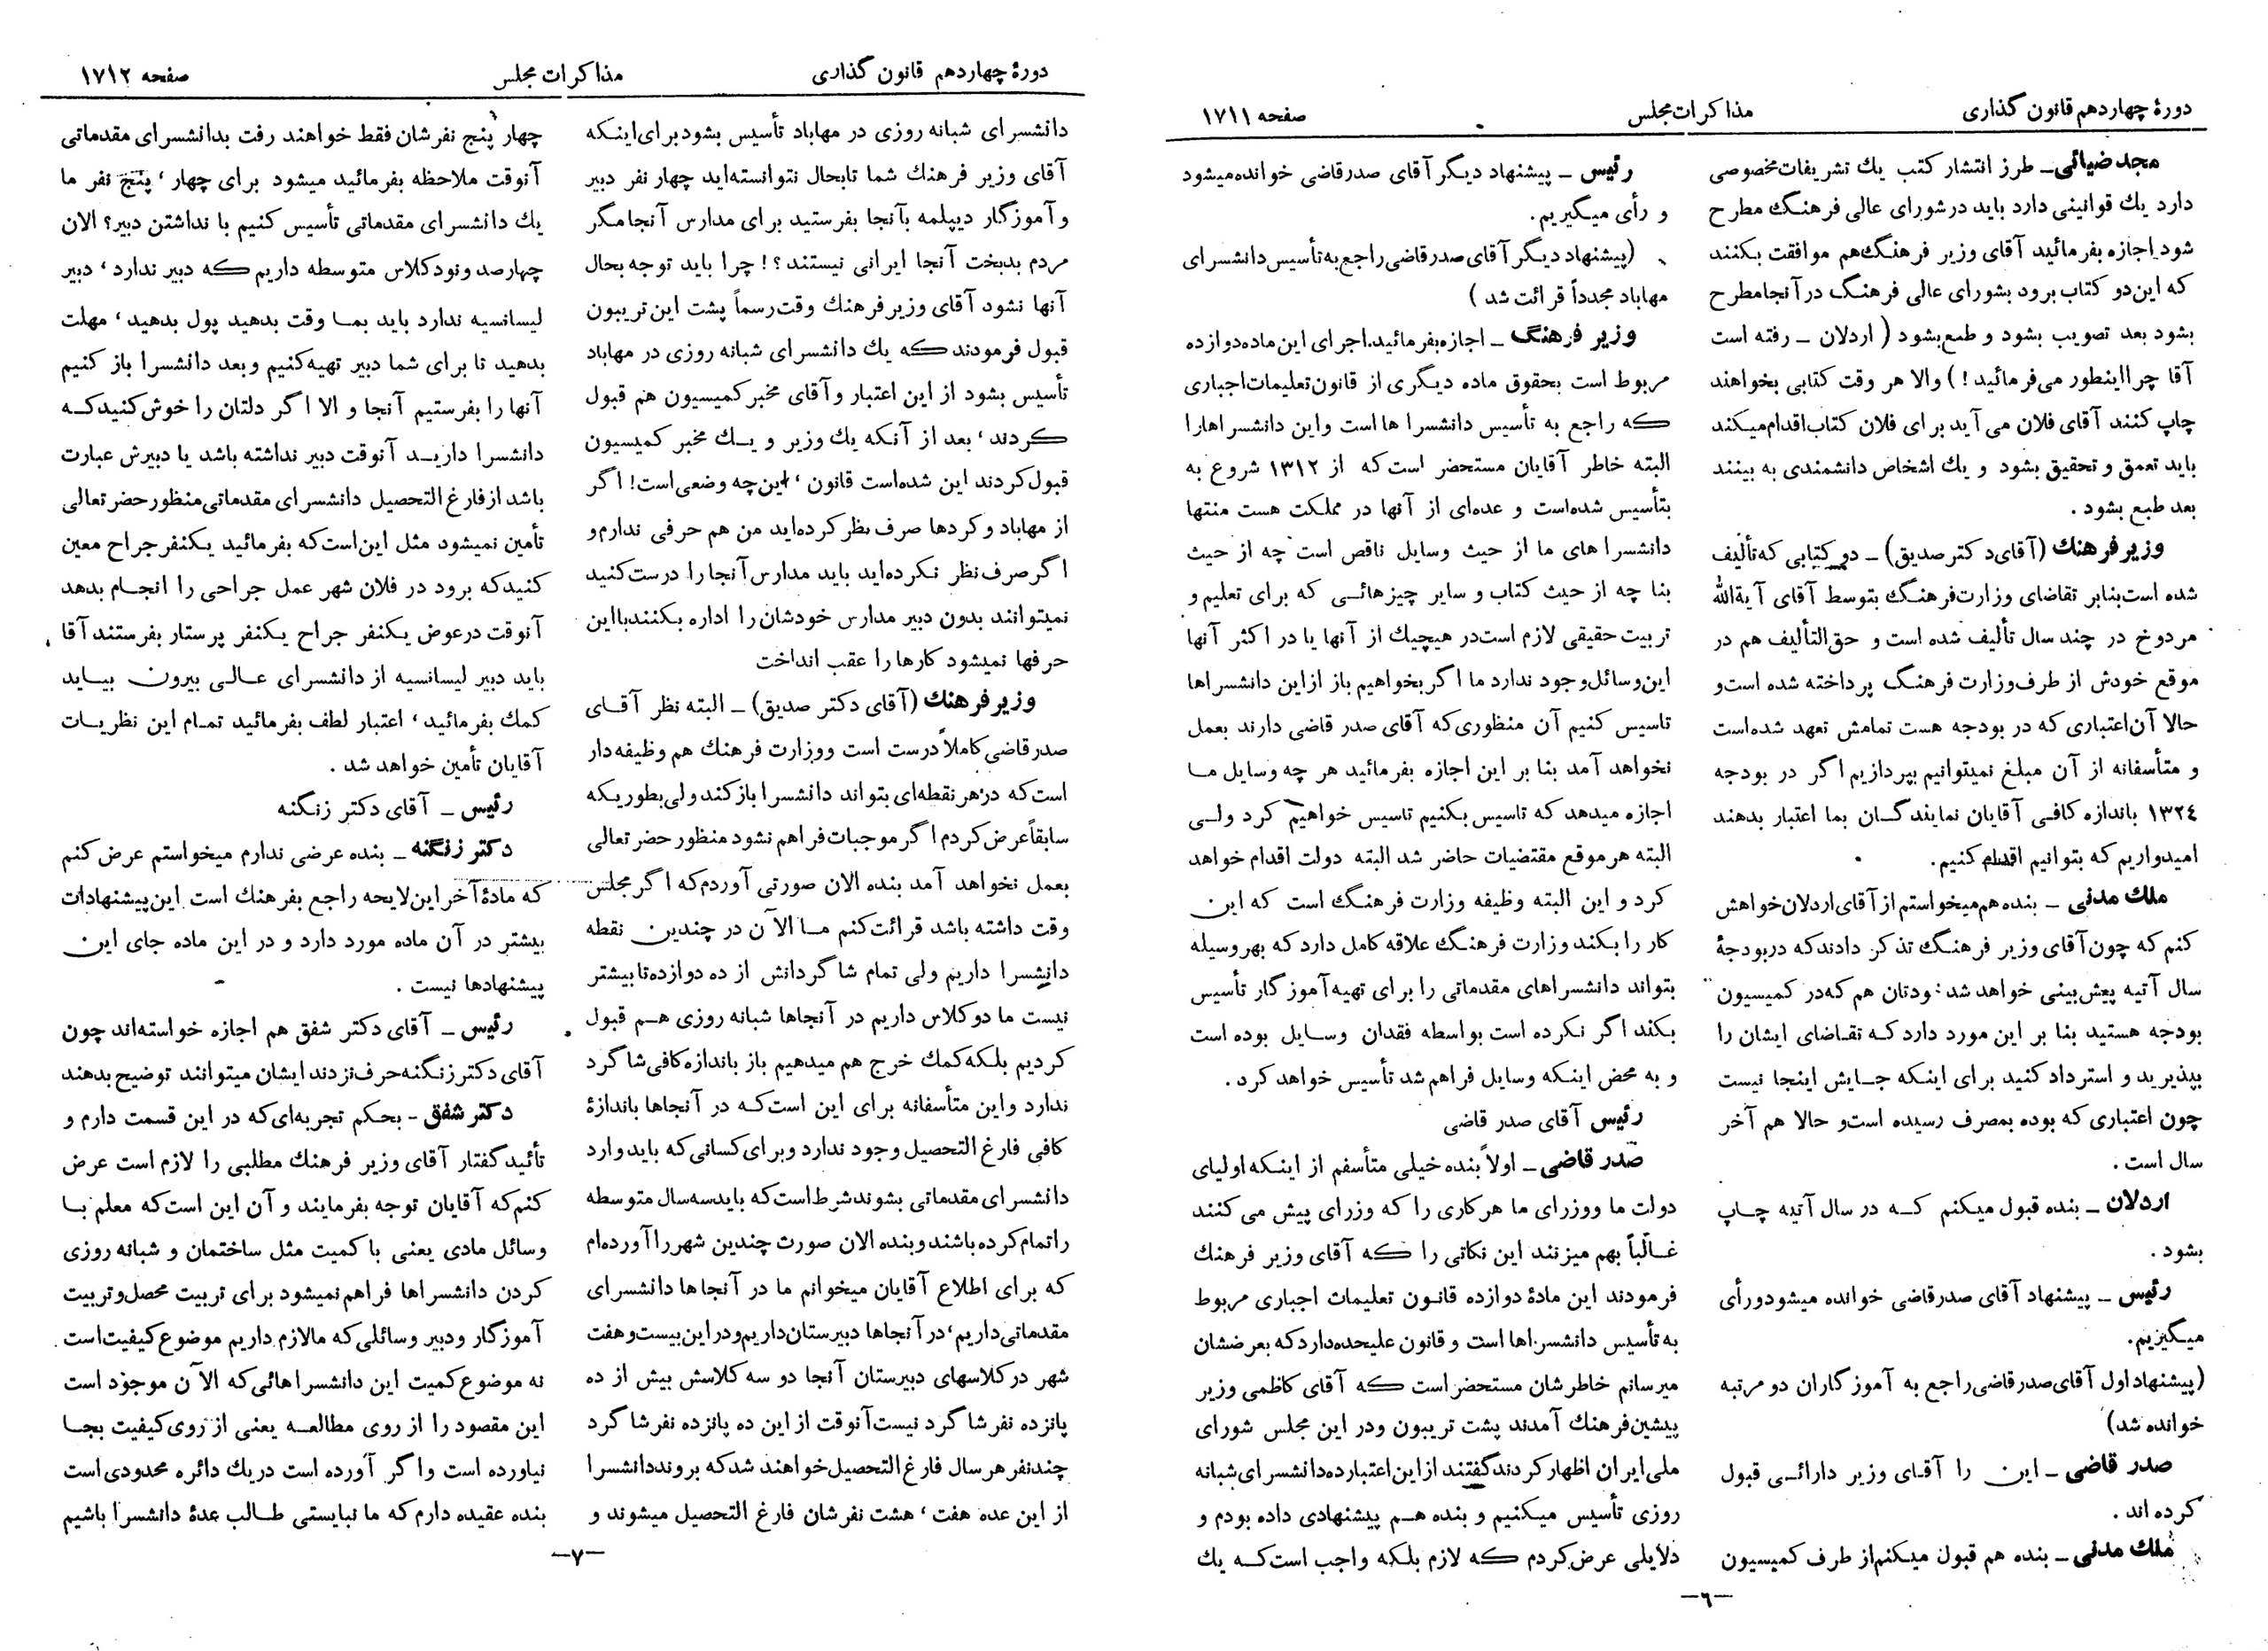 دورهٔ چهاردهم قانون گذاری
مذاکرات مجلس
صفحه ۱۷۱۱
مجد ضیائی ـ طرز انتشار کتب یك تشریفات مخصوصی
دارد یك قوانینی دارد باید در شورای عالی فرهنگ مطرح
شود اجازه بفرمائید آقای وزیر فرهنگ هم موافقت بکنند
که این دو کتاب برود بشورای عالی فرهنگ در آنجا مطرح
بشود بعد تصویب بشود و طبع بشود ( اردلان ـ رفته است
آقا چرا اینطور می‌فرمائید !) والا هر وقت کتابی بخواهند
چاپ کنند آقای فلان می آید برای فلان کتاب اقدام میکند
باید تعمق و تحقیق بشود و یك اشخاص دانشمندی به بینند
بعد طبع بشود .
وزیر فرهنك (آقای دکتر صدیق) ـ دو کتابی که تألیف
شده است بنابر تقاضای وزارت فرهنگ بتوسط آقای آیة‌الله
مردوخ در چند سال تألیف شده است و حق التألیف هم در
موقع خودش از طرف وزارت فرهنگ پرداخته شده است و
حالا آن اعتباری که در بودجه هست تمامش تعهد شده است
و متأسفانه از آن مبلغ نمیتوانیم بپردازیم اگر در بودجه
۱۳۲٤ باندازه کافی آقایان نمایندگان بما اعتبار بدهند
امیدواریم که بتوانیم اقدام کنیم.
ملك مدنی ـ بنده هم میخواستم از آقای اردلان خواهش
کنم که چون آقای وزیر فرهنگ تذکر دادند که در بودجهٔ
سال آتیه پیش بینی خواهد شد خودتان هم که در کمیسیون
بودجه هستید بنا بر این مورد دارد که تقاضای ایشان را
بپذیرید و استرداد کنید برای اینکه جایش اینجا نیست
چون اعتباری که بوده بمصرف رسیده است و حالا هم آخر
سال است .
اردلان ـ بنده قبول میکنم که در سال آتیه چاپ
بشود .
رئیس ـ پیشنهاد آقای صدر قاضی خوانده میشود و رأی
میگیریم.
(پیشنهاد اول آقای صدر قاضی راجع به آموزگاران دو مرتبه
خوانده شد)
صدر قاضی ـ این را آقای وزیر دارائی قبول
کرده اند .
ملك مدنی ـ بنده هم قبول میکنم از طرف کمیسیون
رئیس ـ پیشنهاد دیگر آقای صدر قاضی خوانده میشود
و رأی میگیریم.
(پیشنهاد دیگر آقای صدر قاضی راجع به تأسیس دانشسرای
مهاباد مجدداً قرائت شد )
وزیر فرهنگ ـ اجازه بفرمائید. اجرای این ماده دوازده
مربوط است بحقوق ماده دیگری از قانون تعلیمات اجباری
که راجع به تأسیس دانشسرا ها است و این دانشسراها را
البته خاطر آقایان مستحضر است که از ۱۳۱۲ شروع به
بتأسیس شده است و عده‌ای از آنها در مملکت هست منتها
دانشسرا های ما از حیث وسایل ناقص است چه از حیث
بنا چه از حیث کتاب و سایر چیزهائی که برای تعلیم و
تربیت حقیقی لازم است در هیچیك از آنها یا در اکثر آنها
این وسائل وجود ندارد ما اگر بخواهیم باز از این دانشسراها
تاسیس کنیم آن منظوری که آقای صدر قاضی دارند بعمل
نخواهد آمد بنا بر این اجازه بفرمائید هر چه وسایل ما
اجازه میدهد که تاسیس بکنیم تاسیس خواهیم کرد ولی
البته هر موقع مقتضیات حاضر شد البته دولت اقدام خواهد
کرد و این البته وظیفه وزارت فرهنگ است که این
کار را بکند وزارت فرهنگ علاقه کامل دارد که بهر وسیله
بتواند دانشسراهای مقدماتی را برای تهیه آموزگار تأسیس
بکند اگر نکرده است بواسطه فقدان وسایل بوده است
و به محض اینکه وسایل فراهم شد تأسیس خواهد کرد .
رئیس آقای صدر قاضی
صدر قاضی ـ اولاً بنده خیلی متأسفم از اینکه اولیای
دولت ما و وزرای ما هر کاری را که وزرای پیش می کنند
غالباً بهم میزنند این نکاتی را که آقای وزیر فرهنك
فرمودند این مادهٔ دوازده قانون تعلیمات اجباری مربوط
به تأسیس دانشسراها است و قانون علیحده دارد که بعرضشان
میرسانم خاطرشان مستحضر است که آقای کاظمی وزیر
پیشین فرهنك آمدند پشت تریبون و در این مجلس شورای
ملی ایران اظهار کردند گفتند از این اعتبار ده دانشسرای شبانه
روزی تأسیس میکنیم و بنده هم پیشنهادی داده بودم و
دلایلی عرض کردم که لازم بلکه واجب است که یك
ـ٦ـ
دورهٔ چهاردهم قانون گذاری
مذاکرات مجلس
صفحه ۱۷۱۲
دانشسرای شبانه روزی در مهاباد تأسیس بشود برای اینکه
آقای وزیر فرهنك شما تابحال نتوانسته‌اید چهار نفر دبیر
و آموزگار دیپلمه بآنجا بفرستید برای مدارس آنجا مگر
مردم بدبخت آنجا ایرانی نیستند ؟! چرا باید توجه بحال
آنها نشود آقای وزیر فرهنك وقت رسماً پشت این تریبون
قبول فرمودند که یك دانشسرای شبانه روزی در مهاباد
تأسیس بشود از این اعتبار و آقای مخبر کمیسیون هم قبول
کردند ، بعد از آنکه یك وزیر و یك مخبر کمیسیون
قبول کردند این شده است قانون ، این چه وضعی است! اگر
از مهاباد و کردها صرف نظر کرده‌اید من هم حرفی ندارم و
اگر صرف نظر نکرده‌اید باید مدارس آنجا را درست کنید
نمیتوانند بدون دبیر مدارس خودشان را اداره بکنند با این
حرفها نمیشود کارها را عقب انداخت
وزیر فرهنك (آقای دکتر صدیق) ـ البته نظر آقای
صدر قاضی کاملاً درست است و وزارت فرهنك هم وظیفه دار
است که در هر نقطه‌ای بتواند دانشسرا باز کند ولی بطوریکه
سابقاً عرض کردم اگر موجبات فراهم نشود منظور حضرتعالی
بعمل نخواهد آمد بنده الان صورتی آوردم که اگر مجلس
وقت داشته باشد قرائت کنم ما الآن در چندین نقطه
دانشسرا داریم ولی تمام شاگردانش از ده دوازده تا بیشتر
نیست ما دو کلاس داریم در آنجاها شبانه روزی هم قبول
کردیم بلکه کمك خرج هم میدهیم باز باندازه کافی شاگرد
ندارد و این متأسفانه برای این است که در آنجاها باندازهٔ
کافی فارغ التحصیل وجود ندارد و برای کسانی که باید وارد
دانشسرای مقدماتی بشوند شرط است که باید سه سال متوسطه
را تمام کرده باشند و بنده الان صورت چندین شهر را آورده‌ام
که برای اطلاع آقایان میخوانم ما در آنجا ها دانشسرای
مقدماتی داریم ، در آنجاها دبیرستان داریم و در این بیست و هفت
شهر در کلاسهای دبیرستان آنجا دو سه کلاسش بیش از ده
پانزده نفر شاگرد نیست آنوقت از این ده پانزده نفر شاگرد
چند نفر هر سال فارغ التحصیل خواهند شد که بروند دانشسرا
از این عده هفت ، هشت نفرشان فارغ التحصیل میشوند و
چهار پنج نفرشان فقط خواهند رفت بدانشسرای مقدماتی
آنوقت ملاحظه بفرمائید میشود برای چهار ، پنج نفر ما
یك دانشسرای مقدماتی تأسیس کنیم با نداشتن دبیر؟ الان
چهارصد و نود کلاس متوسطه داریم که دبیر ندارد ، دبیر
لیسانسیه ندارد باید بما وقت بدهید پول بدهید ، مهلت
بدهید تا برای شما دبیر تهیه کنیم و بعد دانشسرا باز کنیم
آنها را بفرستیم آنجا و الا اگر دلتان را خوش کنید که
دانشسرا دارید آنوقت دبیر نداشته باشد یا دبیرش عبارت
باشد از فارغ التحصیل دانشسرای مقدماتی منظور حضرتعالی
تأمین نمیشود مثل این است که بفرمائید یکنفر جراح معین
کنید که برود در فلان شهر عمل جراحی را انجام بدهد
آنوقت در عوض یکنفر جراح یکنفر پرستار بفرستند آقا
باید دبیر لیسانسیه از دانشسرای عالی بیرون بیاید
کمك بفرمائید ، اعتبار لطف بفرمائید تمام این نظریات
آقایان تأمین خواهد شد .
رئیس ـ آقای دکتر زنگنه
دکتر زنگنه ـ بنده عرضی ندارم میخواستم عرض کنم
که مادهٔ آخر این لایحه راجع بفرهنك است این پیشنهادات
بیشتر در آن ماده مورد دارد و در این ماده جای این
پیشنهادها نیست .
رئیس ـ آقای دکتر شفق هم اجازه خواسته‌اند چون
آقای دکتر زنگنه حرف نزدند ایشان میتوانند توضیح بدهند
دکتر شفق ـ بحکم تجربه‌ای که در این قسمت دارم و
تأئید گفتار آقای وزیر فرهنك مطلبی را لازم است عرض
کنم که آقایان توجه بفرمایند و آن این است که معلم با
وسائل مادی یعنی با کمیت مثل ساختمان و شبانه روزی
کردن دانشسراها فراهم نمیشود برای تربیت محصل و تربیت
آموزگار و دبیر وسائلی که ما لازم داریم موضوع کیفیت است
نه موضوع کمیت این دانشسراهائی که الآن موجود است
این مقصود را از روی مطالعه یعنی از روی کیفیت بجا
نیاورده است و اگر آورده است در یك دائره محدودی است
بنده عقیده دارم که ما نبایستی طالب عدهٔ دانشسرا باشیم
ـ۷ـ